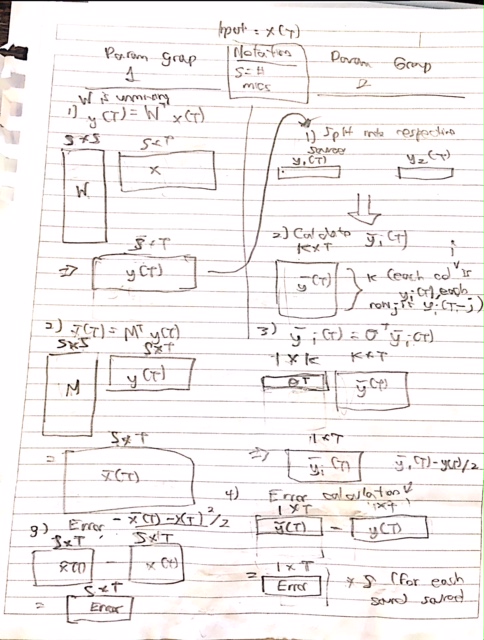 Input = x(T)
Param Group 1
Notation
S = #
mics
Param Group 2
W is unmixing
1) y(T) = Wᵀ x(T)
S×S
S×T
W
x
S×T
=> y(T)
2) x̄(T) = Mᵀ y(T)
S×S
S×T
M
y(T)
S×T
= x̄(T)
3) Error = x̄(T) - x(T)²/2
S×T
S×T
x̄(T) - x(T)
S×T
= Error
1) Split into respective
sources
y₁(T)
y₂(T)
2) Calculate ȳᵢ(T)
K×T
ȳ(T)
K (each col is
yᵢ(T), each
row j is yᵢ(T-j)
3) ȳᵢ(T) = θᵀ ȳᵢ(T)
1×K
K×T
θᵀ
ȳ(T)
1×T
=> ȳᵢ(T)
ȳᵢ(T) - y(T)/2
4) Error calculation
1×T
1×T
ȳ(T) - y(T)
1×T
= Error
× S (for each
sound source)